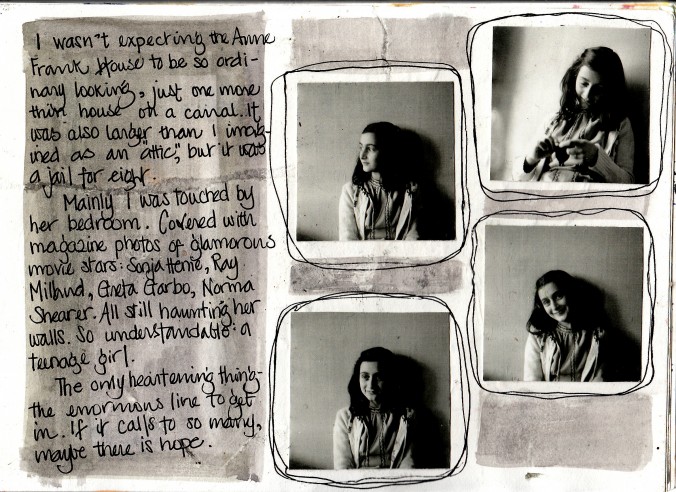 I wasn't expecting the Anne
Frank House to be so ordi-
nary looking, just one more
thin house on a canal. It
was also larger than I imag-
ined as an "attic", but it was
a jail for eight.
Mainly I was touched by
her bedroom. Covered with
magazine photos of glamorous
movie stars: Sonja Henie, Ray
Milland, Greta Garbo, Norma
Shearer. All still haunting her
walls. So understandable: a
teenage girl.
The only heartening thing-
the enormous line to get
in. If it calls to so many,
maybe there is hope.